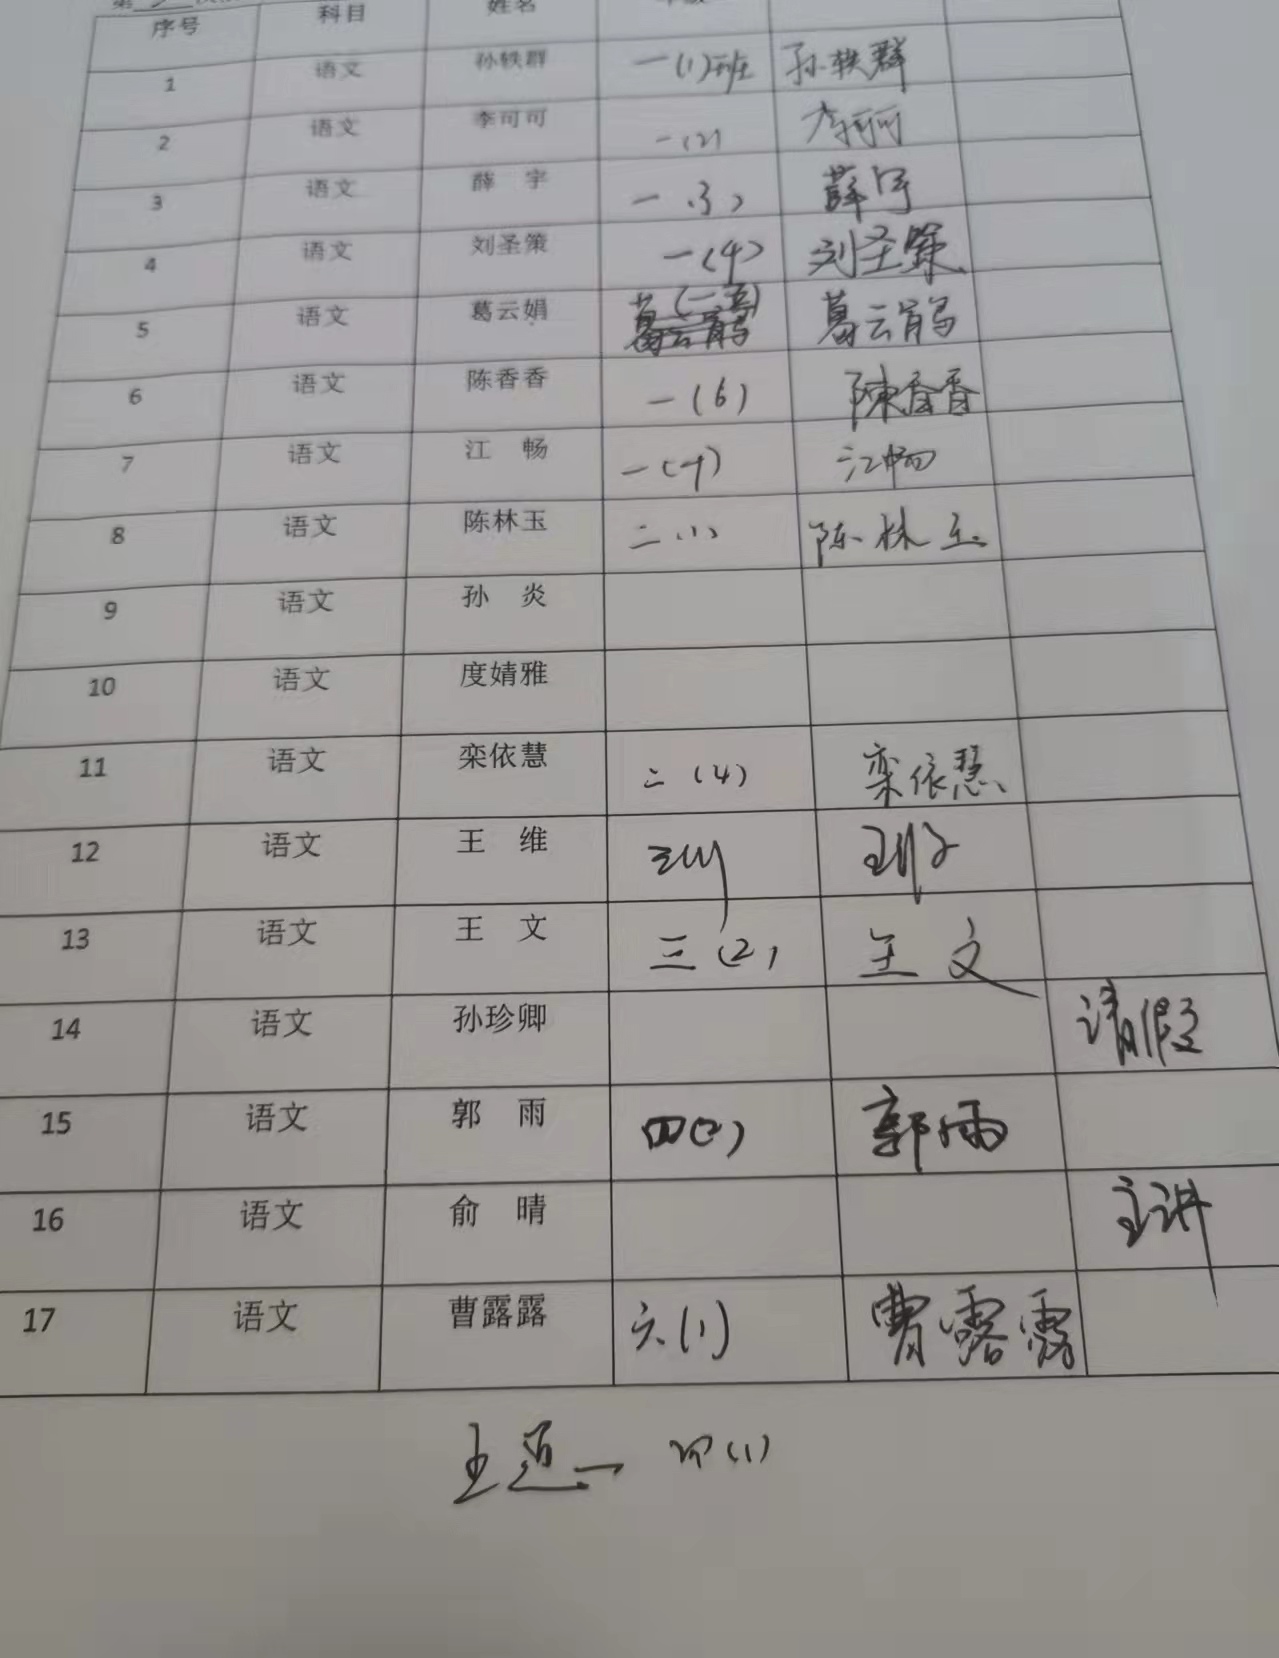 序号 科目 姓名
1 语文 孙轶群 一(1)班 孙轶群
2 语文 李可可 一(2) 李可可
3 语文 薛 宇 一(3) 薛宇
4 语文 刘圣策 一(4) 刘圣策
5 语文 葛云娟 (一五) 葛云娟
6 语文 陈香香 一(6) 陳香香
7 语文 江 畅 一(7) 江畅
8 语文 陈林玉 二(1) 陈林玉
9 语文 孙 炎
10 语文 度婧雅
11 语文 栾依慧 二(4) 栾依慧
12 语文 王 维 王维
13 语文 王 文 三(2) 王文
14 语文 孙珍卿 请假
15 语文 郭 雨 四(2) 郭雨
16 语文 俞 晴 主讲
17 语文 曹露露 六(1) 曹露露
(1)